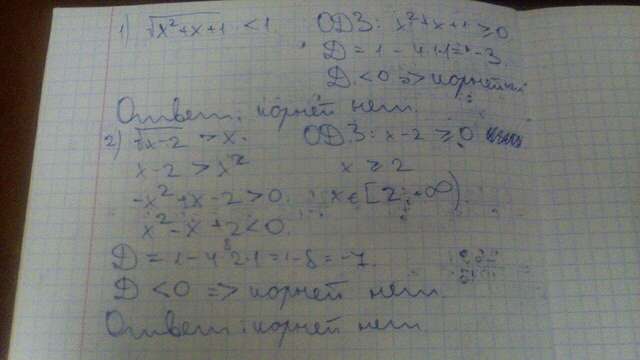 1) √x²+x+1 < 1 ОДЗ: x²+x+1 ≥ 0
D = 1 - 4·1·1 = -3
D < 0 => корней нет
Ответ: корней нет.
2) √x-2 > x. ОДЗ: x-2 ≥ 0
x-2 > x² x ≥ 2
-x²+x-2 > 0. x ∈ [2; +∞)
x²-x+2 < 0.
D = 1-4·2·1 = 1-8 = -7.
D < 0 => корней нет.
Ответ: корней нет.